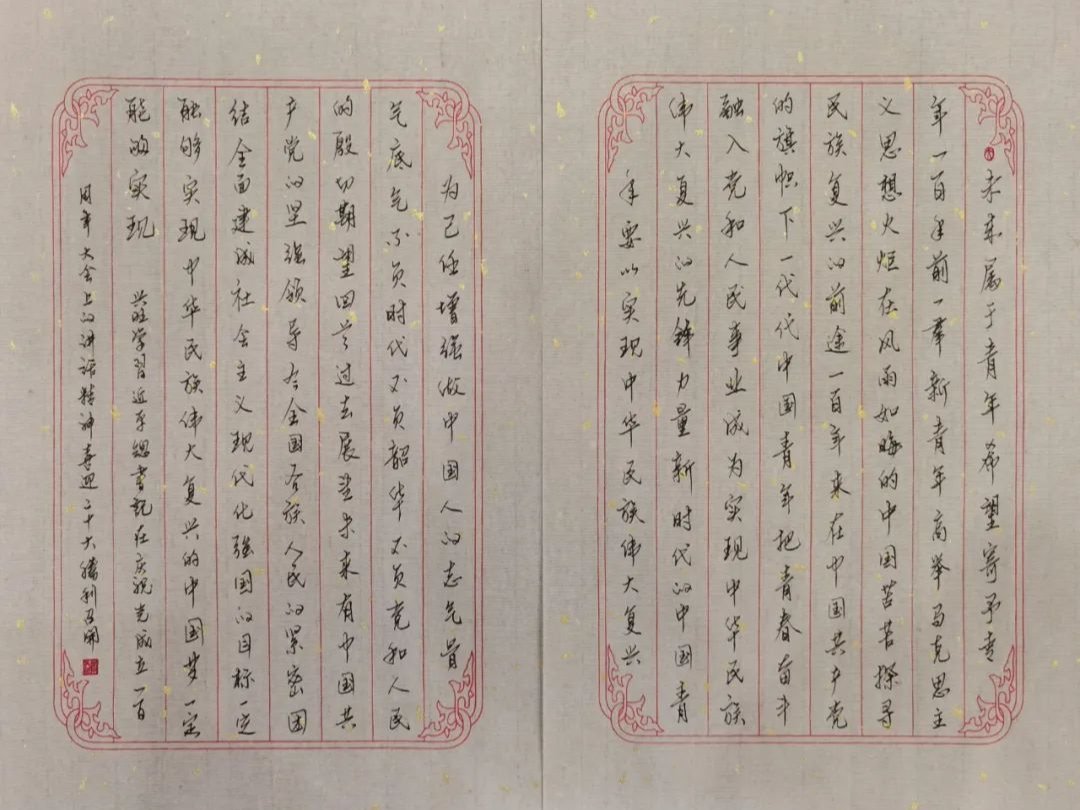 未来属于青年希望寄予青
年一百年前一羣新青年高举马克思主
义思想火炬在风雨如晦的中国苦苦探寻
民族复兴的前途一百年来在中国共产党
的旗帜下一代代中国青年把青春奋斗
融入党和人民事业成为实现中华民族
伟大复兴的先锋力量新时代的中国青
年要以实现中华民族伟大复兴
为己任增强做中国人的志气骨
气底气不负时代不负韶华不负党和人民
的殷切期望回首过去展望未来有中国共
产党的坚强领导今全国各族人民的紧密团
结全面建成社会主义现代化强国的目标一定
能够实现中华民族伟大复兴的中国梦一定
能够实现 学習近平總書記在庆祝党成立一百
周年大会上的讲话精神喜迎二十大胜利召开